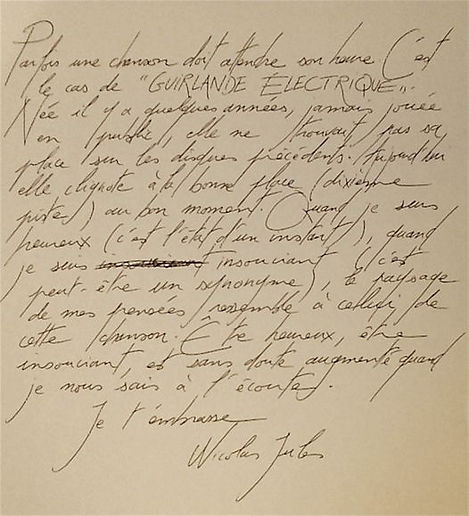 Parfois une chanson doit attendre son heure. C'est
le cas de "GUIRLANDE ÉLECTRIQUE".
Née il y a quelques années, jamais jouée
en public, elle ne trouvait pas sa
place sur les disques précédents. Aujourd'hui
elle clignote à la bonne place (dixième
piste) au bon moment. Quand je suis
heureux (c'est l'état d'un instant), quand
je suis insouciant (c'est
peut-être un synonyme), le paysage
de mes pensées ressemble à celui de
cette chanson. Être heureux, être
insouciant, est sans doute augmenté quand
je nous sais à l'écoute.
Je t'embrasse
Nicolas Jules